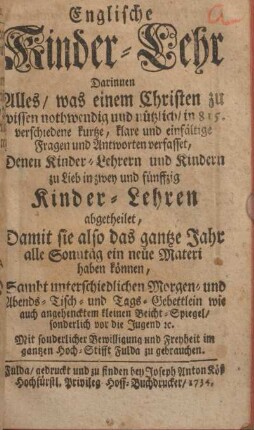 Englische
Kinder-Lehr
Darinnen
Alles/ was einem Christen zu
wissen nothwendig und nützlich/ in 815.
verschiedene kurtze, klare und einfältige
Fragen und Antworten verfasset,
Denen Kinder-Lehrern und Kindern
zu Lieb in zwey und fünffzig
Kinder-Lehren
abgetheilet,
Damit sie also das gantze Jahr
alle Sonntag ein neue Materi
haben können,
Sambt unterschiedlichen Morgen- und
Abends- Tisch- und Tags- Gebettlein wie
auch angehencktem kleinen Beicht-Spiegel/
sonderlich vor die Jugend ꝛc.
Mit sonderlicher Bewilligung und Freyheit im
gantzen Hoch-Stifft Fulda zu gebrauchen.
Fulda/ gedruckt und zu finden bey Joseph Anton Köß
Hochfürstl. Privileg. Hoff-Buchdrucker/ 1734.